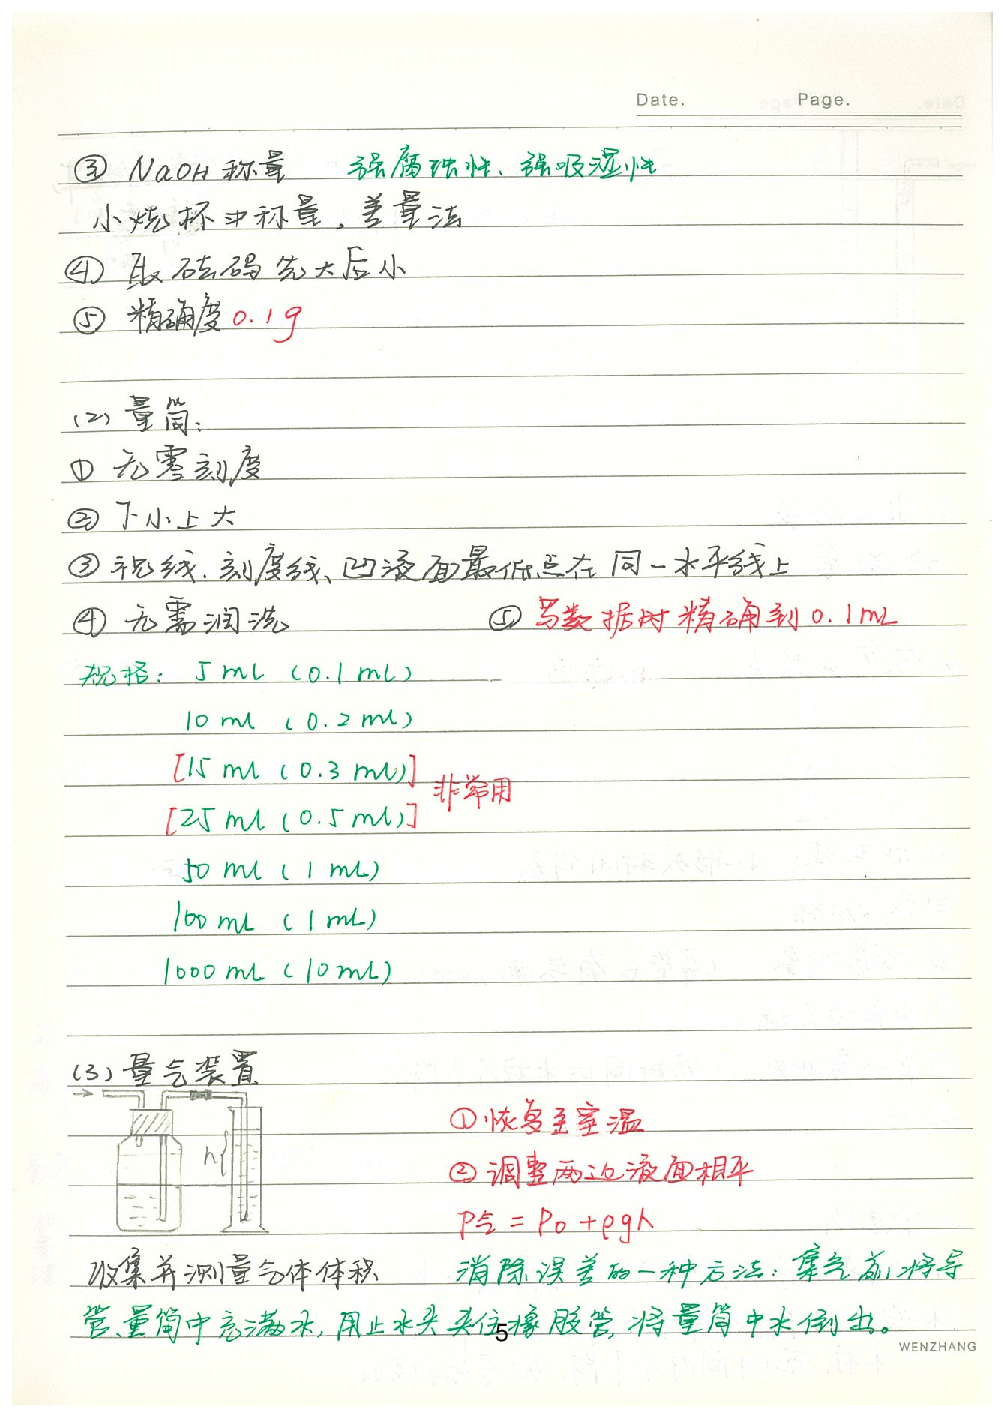 Date. Page.
③ NaOH称量 强腐蚀性、强吸湿性
小烧杯中称量，差量法
④ 取砝码先大后小
⑤ 精确度0.1g
(2) 量筒：
① 无零刻度
② 下小上大
③ 视线、刻度线、凹液面最低点在同一水平线上
④ 无需润洗 ⑤ 写数据时精确到0.1mL
规格： 5mL (0.1mL)
10mL (0.2mL)
[15mL (0.3mL)]
非常用
[25mL (0.5mL)]
50mL (1mL)
100mL (1mL)
1000mL (10mL)
(3) 量气装置
① 恢复至室温
h
② 调整两边液面相平
P气 = P₀ + ρgh
收集并测量气体体积 消除误差的一种方法：集气前，将导
管、量筒中充满水，用止水夹夹住橡胶管，将量筒中水倒出。
5
WENZHANG